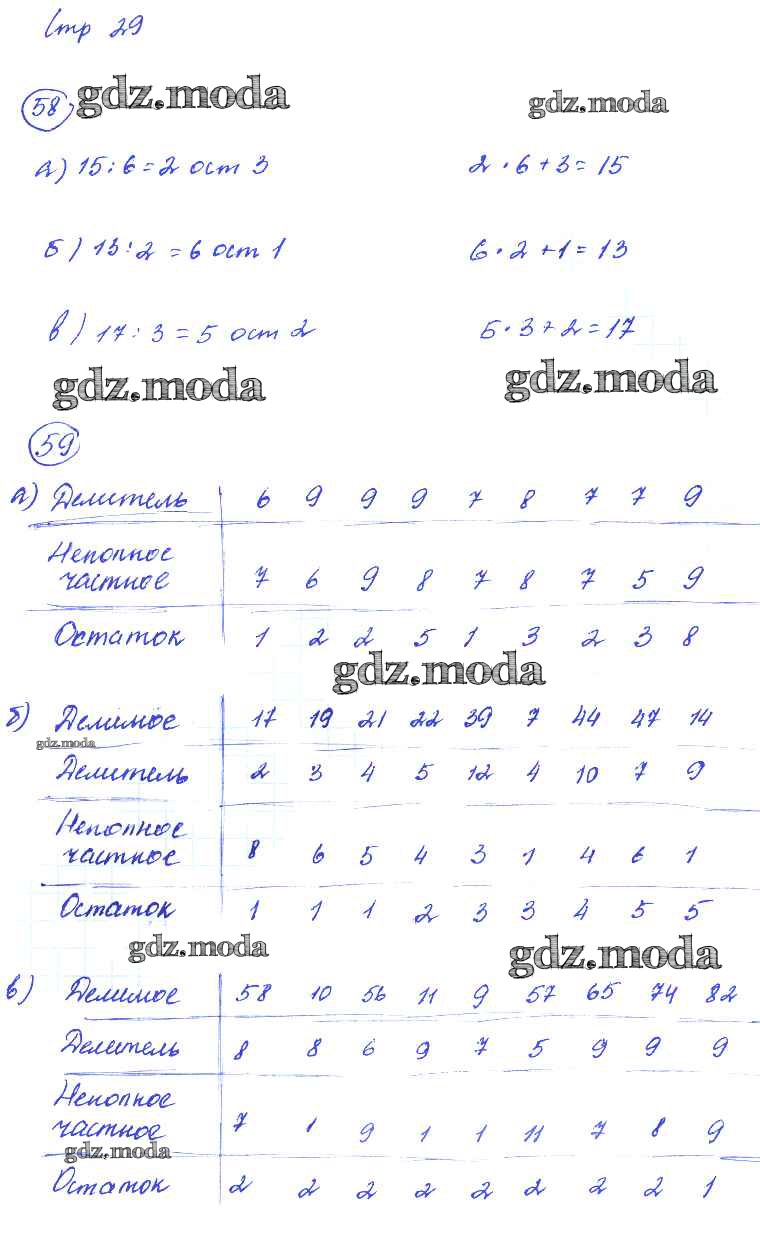 Стр 29
58, gdz.moda gdz.moda
а) 15:6=2 ост 3 2·6+3=15
б) 13:2=6 ост 1 6·2+1=13
в) 17:3=5 ост 2 5·3+2=17
gdz.moda gdz.moda
59
а) Делитель 6 9 9 9 7 8 7 7 9
Неполное
частное 7 6 9 8 7 8 7 5 9
Остаток 1 2 2 5 1 3 2 3 8
gdz.moda
б) Делимое 17 19 21 22 39 7 44 47 14
gdz.moda
Делитель 2 3 4 5 12 4 10 7 9
Неполное
частное 8 6 5 4 3 1 4 6 1
Остаток 1 1 1 2 3 3 4 5 5
gdz.moda gdz.moda
в) Делимое 58 10 56 11 9 57 65 74 82
Делитель 8 8 6 9 7 5 9 9 9
Неполное
частное 7 1 9 1 1 11 7 8 9
gdz.moda
Остаток 2 2 2 2 2 2 2 2 1